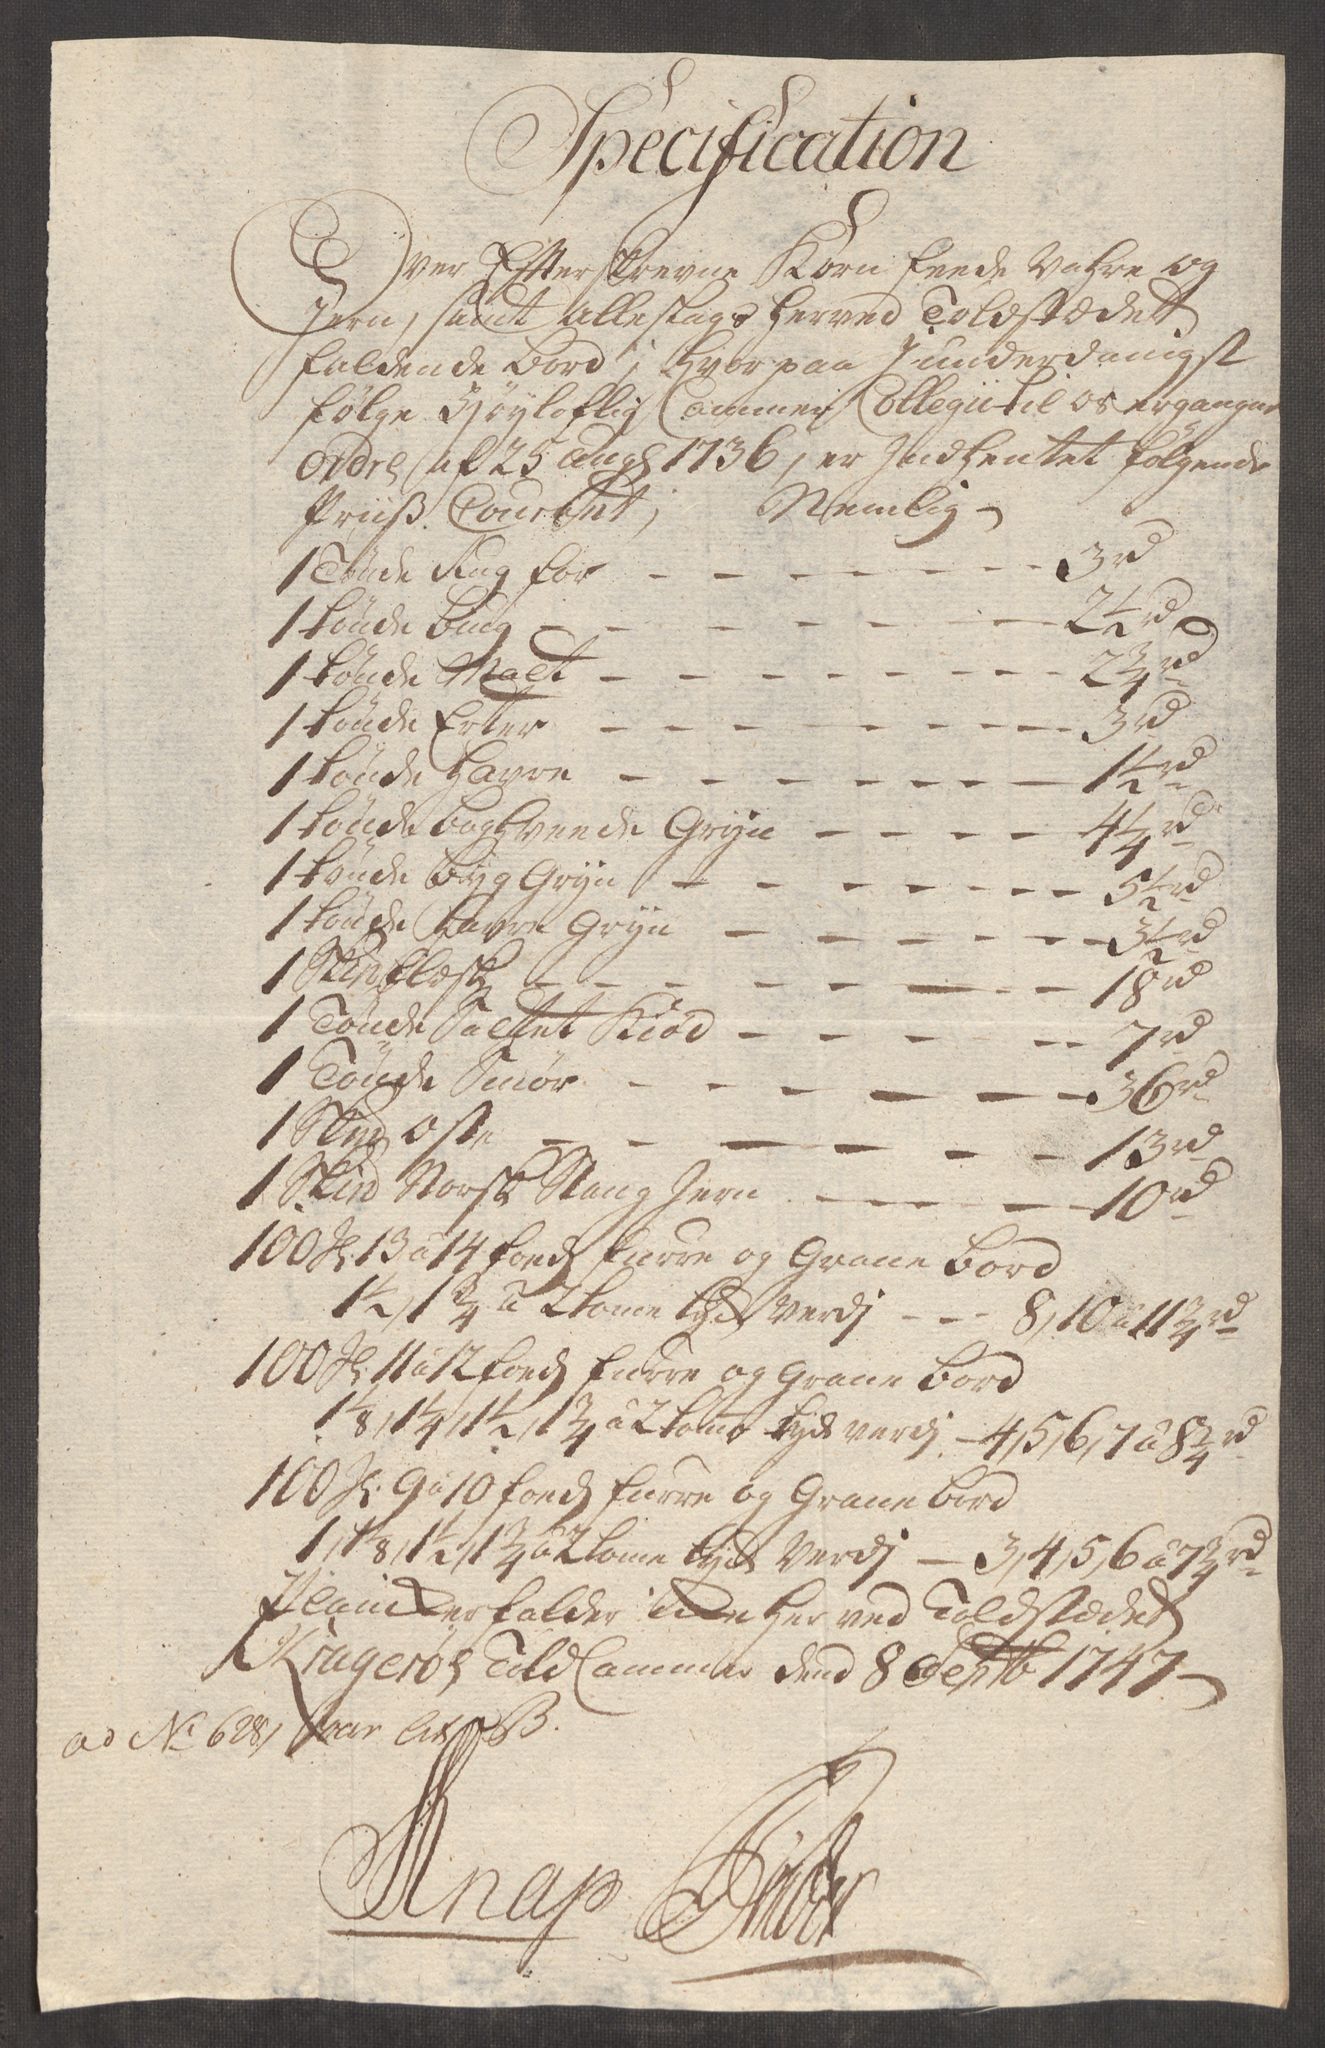 Specification
Over Efterskrevne Korn feede Vahre og
Jern, samt alleslags herved Toldstædet
faldende bord, hvorpaa J underdanigst
følge Høyloflig Cammer Collegii til os ergangne
ordre af 25 Aug 1736, er Jndhentet følgende
Priiß Courent, Nemlig
1 Tønde Rug for - - - 3 rd
1 tønde bug - - - 2 1/2 rd
1 tønde Malt - - - 2 3/4 rd
1 tønde Erter - - - 3 rd
1 tønde Havre - - - 1 1/2 rd
1 tønde boghveede Gryn - - - 4 1/4 rd
1 tønde byg Gryn - - - 5 1/2 rd
1 tønde Havre Gryn - - - 3 1/2 rd
1 Skпd flæsk - - - 18 rd
1 Tønde Saltet Kiød - - - 7 rd
1 Tønde Smør - - - 36 rd
1 Skпd oste - - - 13 rd
1 Skпd Norsk Stang Jern - - - 10 rd
100 St 13 a 14 foeds furre og Grane bord
1 1/2, 1 3/4 a 2 tome tyk Verdj - - - 8, 10 a 11 3/4 rd
100 St 11 a 12 foeds furre og Grane bord
1 1/8, 1 1/4, 1 1/2, 1 3/4 a 2 tome tyk verdj - 4, 5, 6, 7 a 8 3/4 rd
100 St 9 a 10 foeds furre og Grane bord
1, 1 1/8, 1 1/2, 1 3/4 a 2 tome tyk Verdj - 3, 4, 5, 6 a 7 3/4 rd
Plancker falder icke her ved Toldstædet
Kragerøe Told Cammer dend 8 Septb 1747
ad No 628, Litr B.
Knap